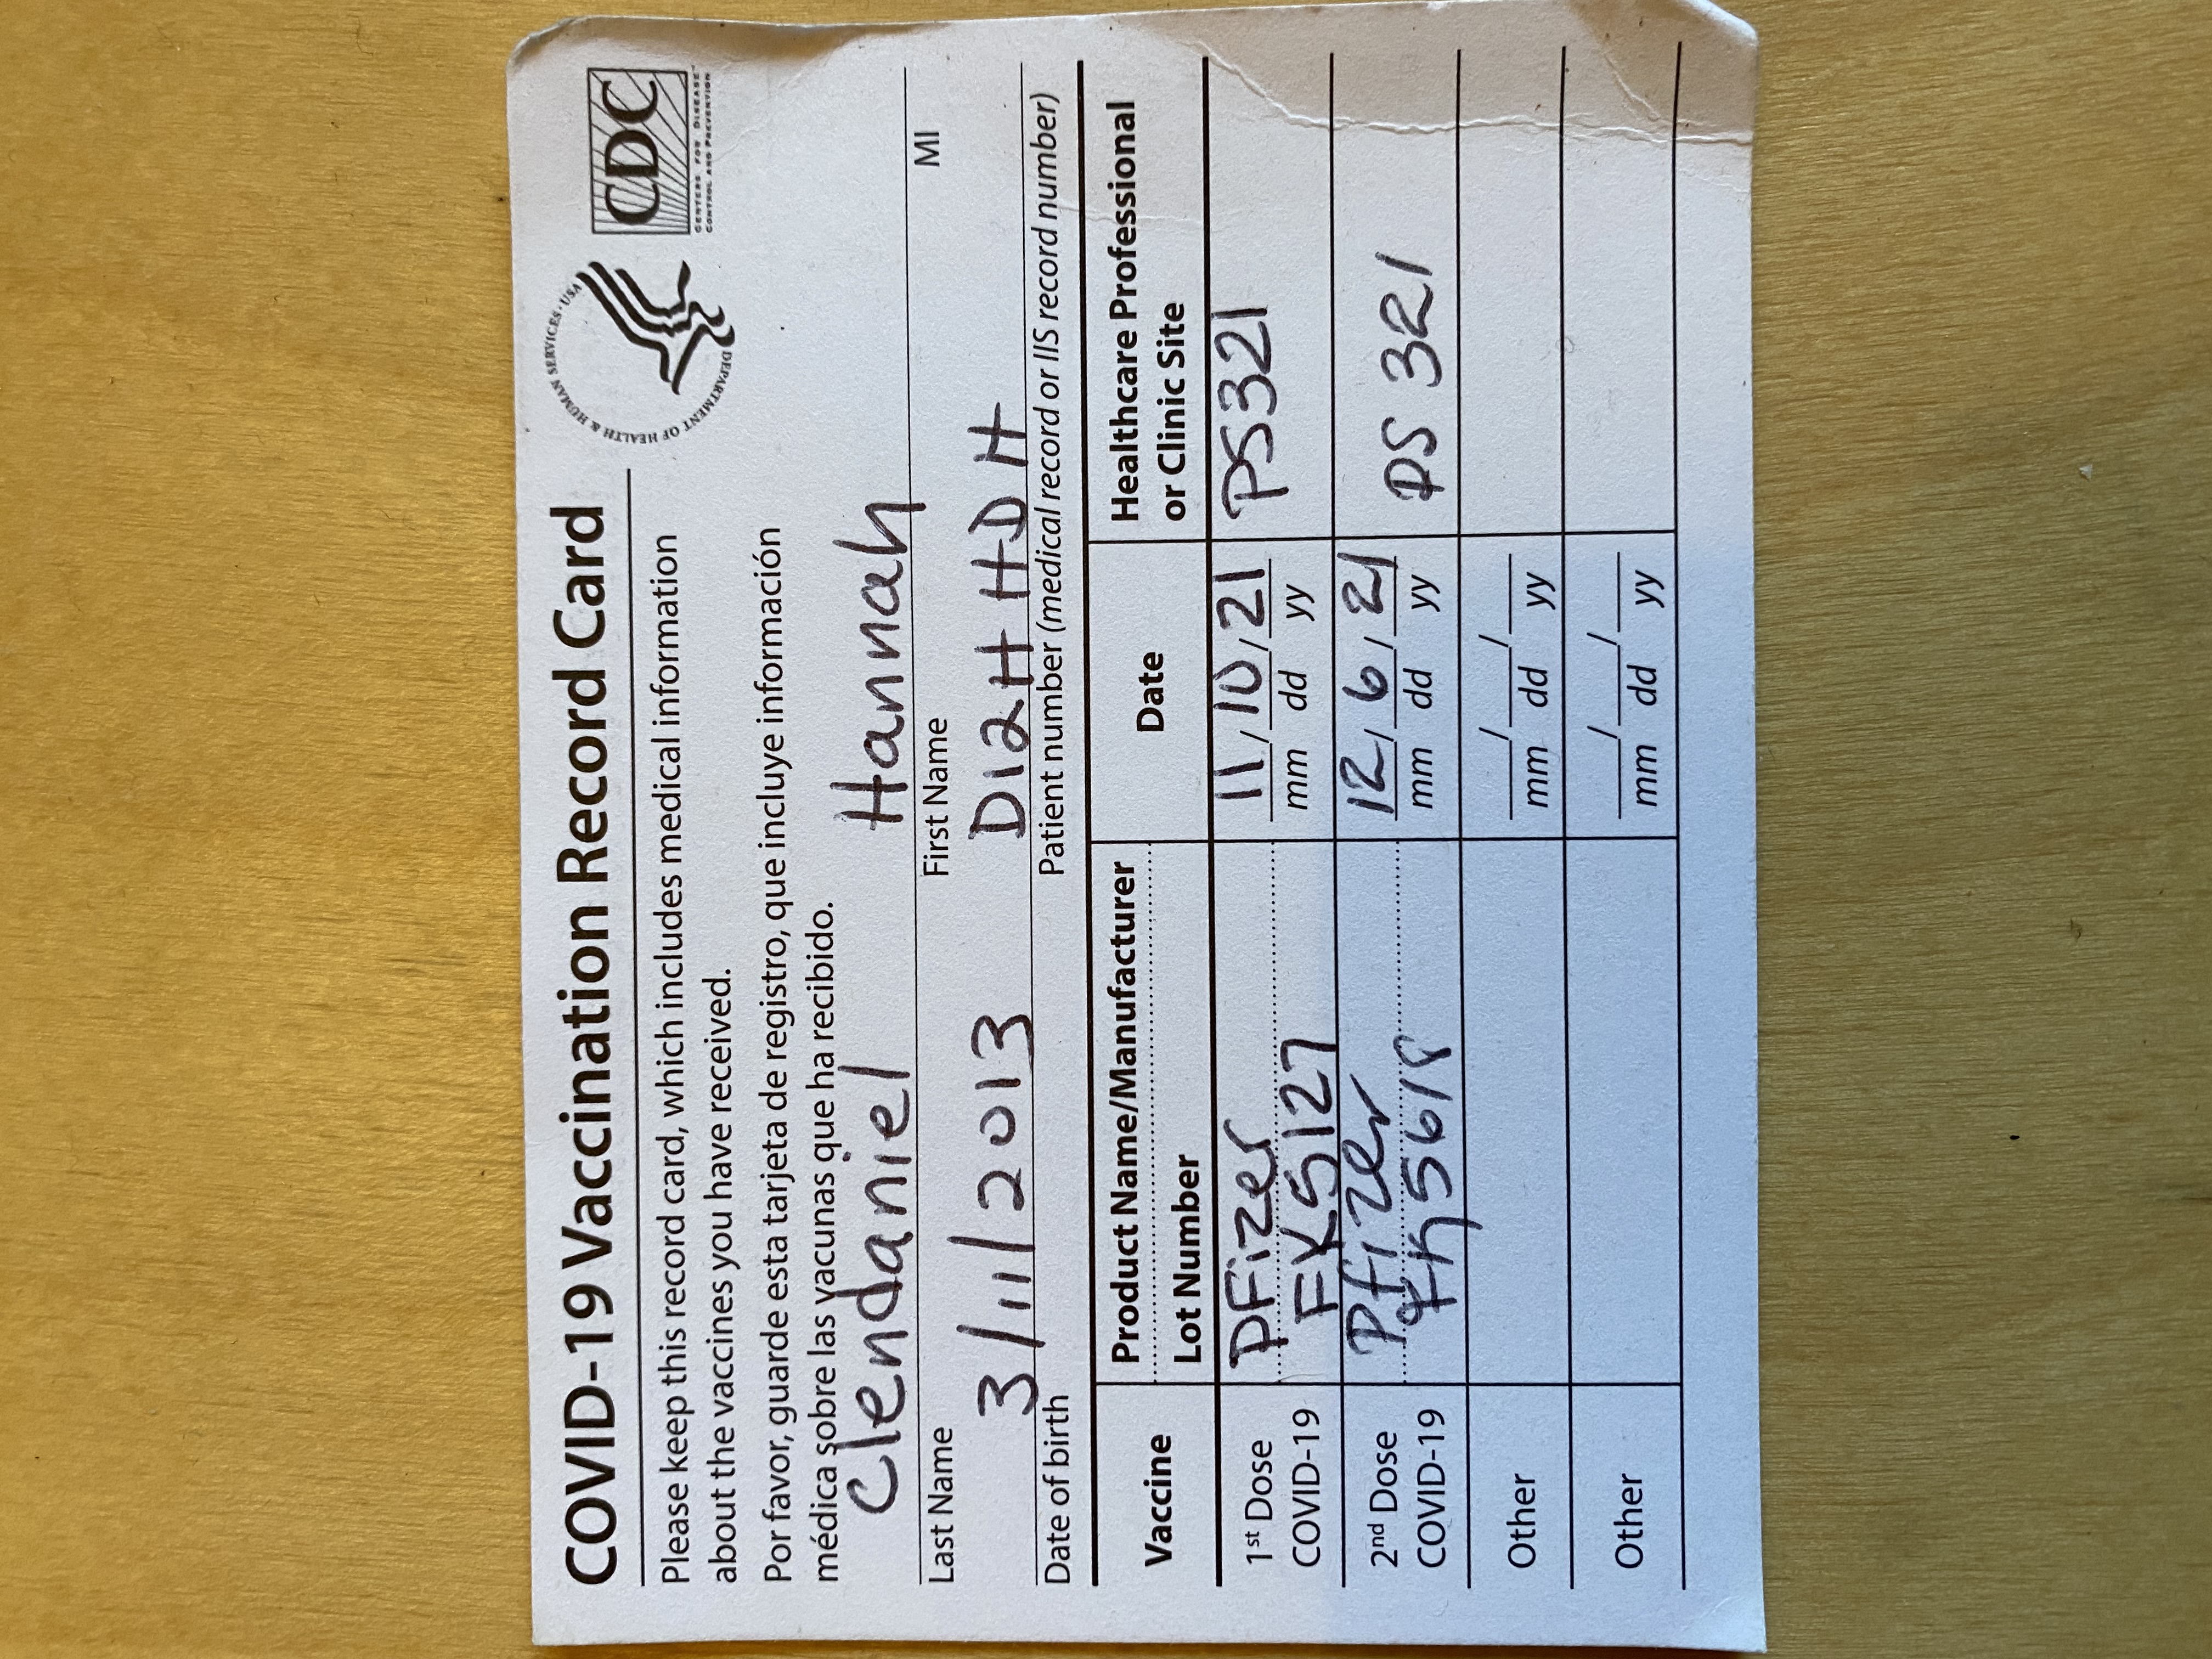 COVID-19 Vaccination Record Card
DEPARTMENT OF HEALTH & HUMAN SERVICES · USA
CDC
CENTERS FOR DISEASE™
CONTROL AND PREVENTION
Please keep this record card, which includes medical information
about the vaccines you have received.
Por favor, guarde esta tarjeta de registro, que incluye información
médica sobre las vacunas que ha recibido.
Clendaniel Hannah
Last Name First Name MI
3/11/2013 D12HHDH
Date of birth Patient number (medical record or IIS record number)
Vaccine Product Name/Manufacturer Date Healthcare Professional
Lot Number or Clinic Site
1st Dose PFizer 11/10/21 PS321
COVID-19 FK5127 mm dd yy
2nd Dose Pfizer 12/6/21 PS 321
COVID-19 5618 mm dd yy
Other / /
mm dd yy
Other / /
mm dd yy